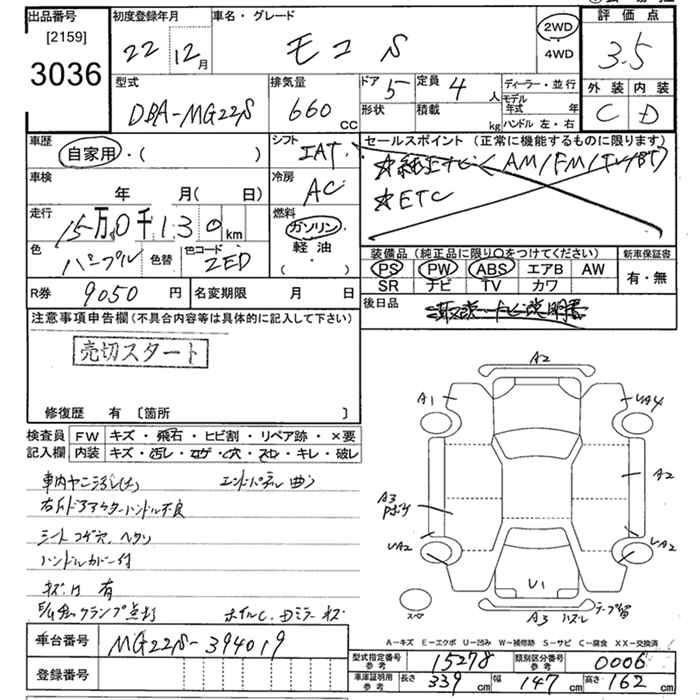 出品番号
[2159]
3036
初度登録年月
22 12月
車名・グレード
モコ S
2WD
4WD
評価点
3.5
外装 内装
C D
型式
DBA-MG22S
排気量
660 cc
ドア 5
定員 4 人
形状
積載 kg
ディーラー・並行
モデル年式 年
ハンドル 左・右
車歴
自家用・( )
シフト
IAT
セールスポイント(正常に機能するものに限ります)
☆純正ナビ(AM/FM/TV/BT)
☆ETC
車検
年 月(日)
冷房
AC
走行
15万0千130km
燃料
ガソリン
軽油
( )
色
パープル
色替
色コード
ZED
装備品(純正品に限り○をつけてください)
PS PW ABS エアB AW
SR ナビ TV カワ
新車保証書
有・無
R券 9050円
名変期限 月 日
後日品
注意事項申告欄(不具合内容等は具体的に記入して下さい)
売切スタート
修復歴 有 [箇所 ]
検査員記入欄
FW キズ・飛石・ヒビ割・リペア跡・×要
内装 キズ・汚レ・コゲ・穴・スレ・キレ・破レ
エンドパネル曲り
右F.ドアアウターハンドル不良
シートコゲ穴、ヘタリ
ハンドルカバー付
キズ、凹 有
ホイルC、Dミラーキズ
A2
A1
UA4
A2
A3
UA2
UA2
U1
A3
スペ
A-キズ E-エクボ U-凹み W-補修跡 S-サビ C-腐食 XX-交換済
車台番号
MG22S-394019
登録番号
型式指定番号 参考 15278
類別区分番号 参考 0006
車庫証明用 参考 長さ 339cm 幅 147cm 高さ 162cm